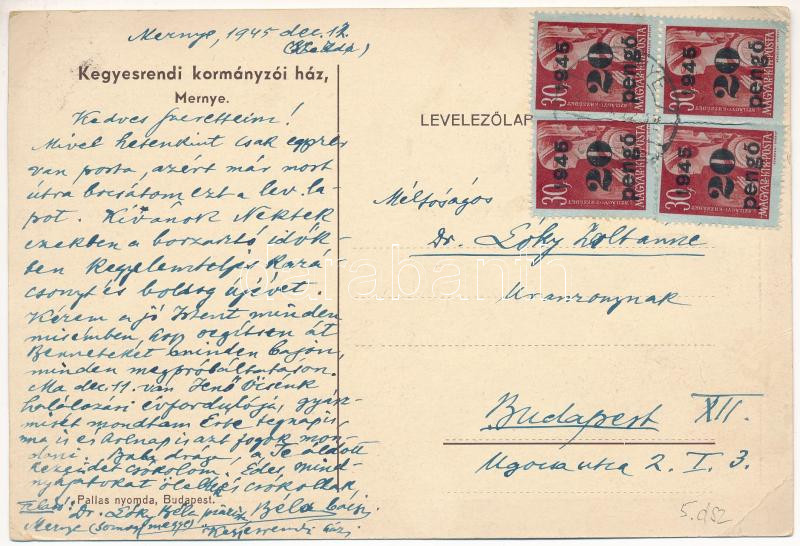 Mernye, 1945 dec. 12.
Kegyesrendi kormányzói ház,
Mernye.
Kedves Szeretteim!
Mivel hetenkint csak egyszer
van posta, azért már most
útra bocsátom ezt a lev. la-
pot. Kívánok Nektek
ezekben a borzasztó idők-
ben kegyelemteljes kará-
csonyt és boldog újévet.
Kérem a jó Istent minden
misémben, hogy segítsen át
Benneteket minden bajon,
minden megpróbáltatáson.
Ma dec. 11. van Jenő
halálozási évfordulója, gyász-
misét mondtam Érte tegnap is,
ma is és holnap is azt fogok mon-
dani. Baby drága, a Te áldott
kezeidet csókolom, Édes mind-
nyájatokat ölellek és csókollak
Béla bácsi
Pallas nyomda, Budapest.
Feladó: Dr. Lóky Béla piarista
Mernye (Somogy megye) Kegyesrendi ház
LEVELEZŐLAP
Méltóságos
Dr. Lóky Zoltánné
Úrasszonynak
Budapest XII.
Ugocsa utca 2. I. 3.
30 1945 20 pengő MAGYAR KIR. POSTA
30 1945 20 pengő MAGYAR KIR. POSTA
30 1945 20 pengő MAGYAR KIR. POSTA
30 1945 20 pengő MAGYAR KIR. POSTA
darabanth